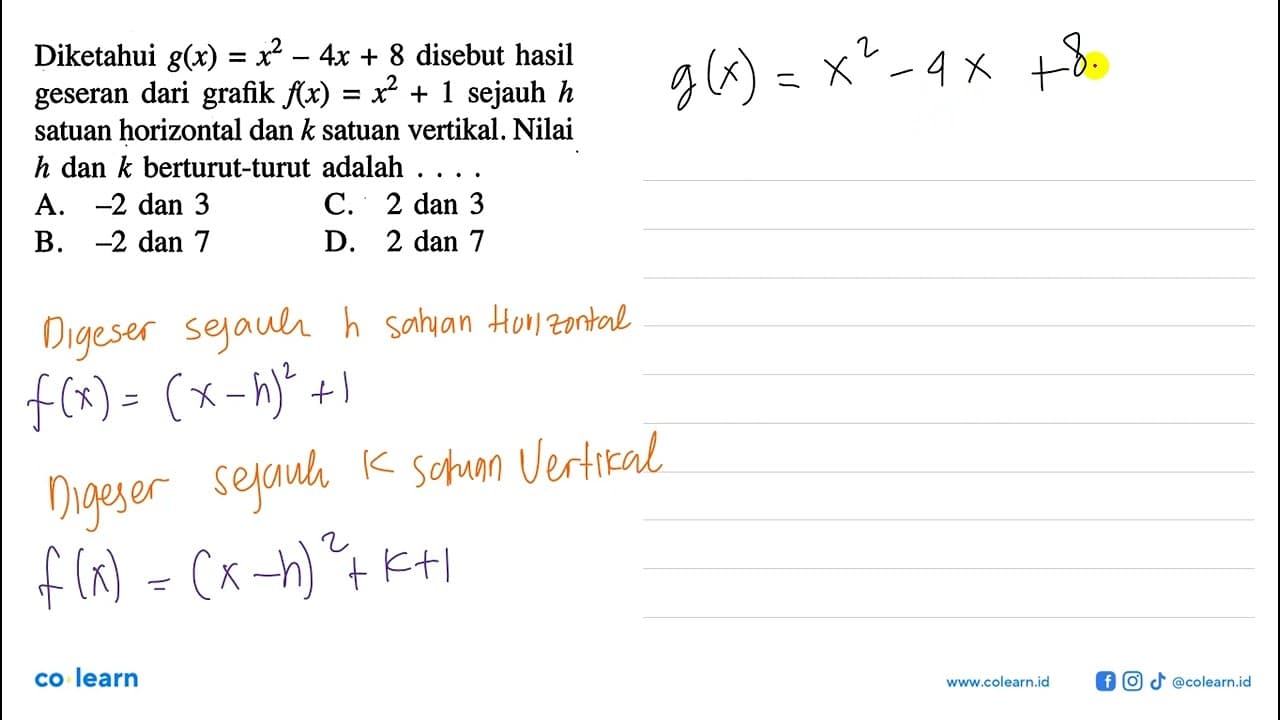 Diketahui g(x) = x² – 4x + 8 disebut hasil
geseran dari grafik f(x) = x² + 1 sejauh h
satuan horizontal dan k satuan vertikal. Nilai
h dan k berturut-turut adalah . . . .
A. –2 dan 3 C. 2 dan 3
B. –2 dan 7 D. 2 dan 7
Digeser sejauh h satuan Horizontal
f(x) = (x – h)² + 1
Digeser sejauh K satuan Vertikal
f(x) = (x – h)² + K + 1
g(x) = x² – 4x + 8
co learn
www.colearn.id
@colearn.id